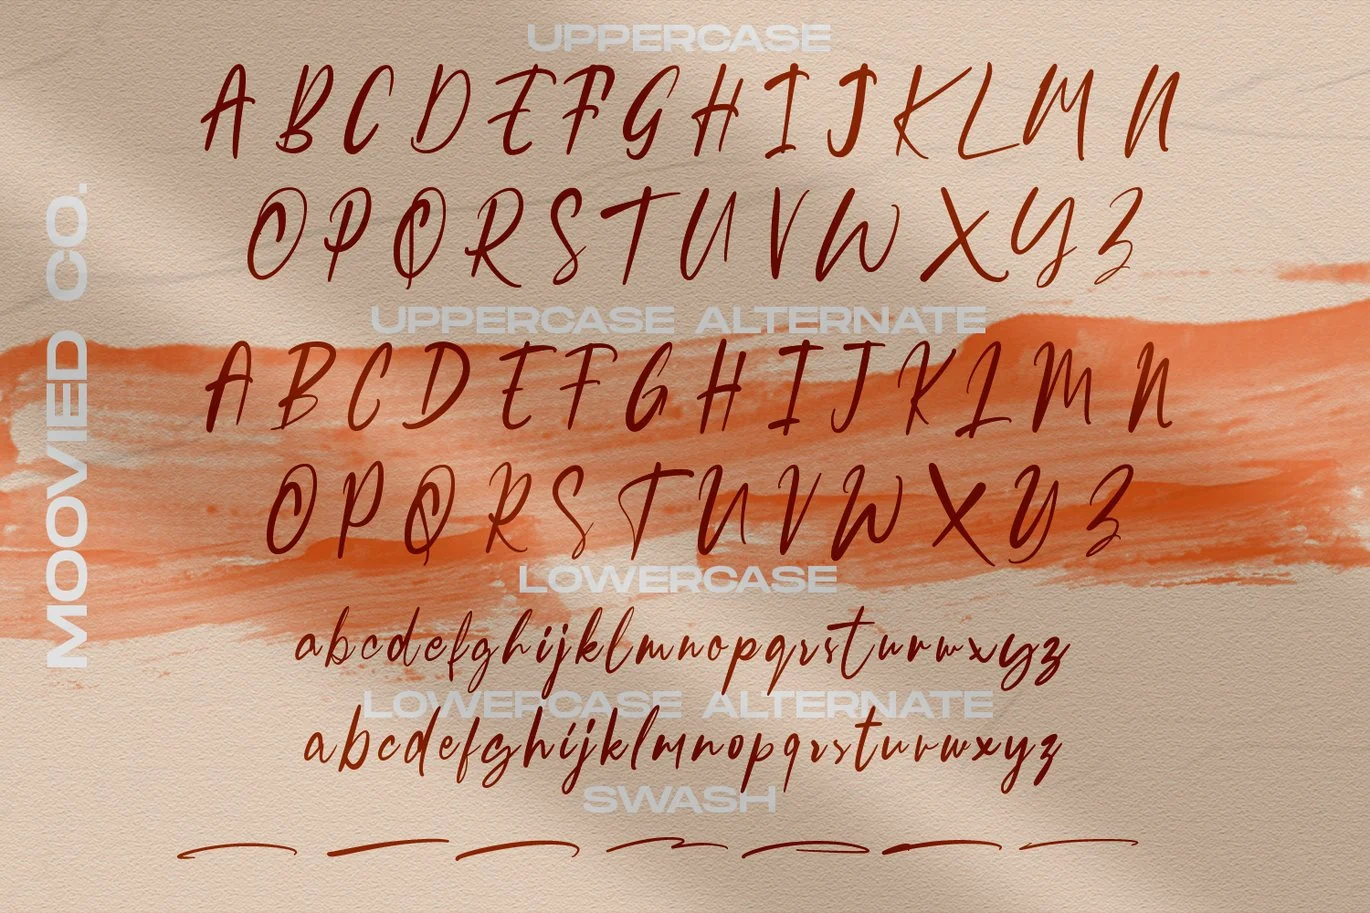 UPPERCASE
A B C D E F G H I J K L M N
O P Q R S T U V W X Y Z
UPPERCASE ALTERNATE
A B C D E F G H I J K L M N
O P Q R S T U V W X Y Z
LOWERCASE
abcdefghijklmnopqrsturwxyz
LOWERCASE ALTERNATE
abcdefghijklmnopqrstuvwxyz
SWASH
MOOVIED CO.